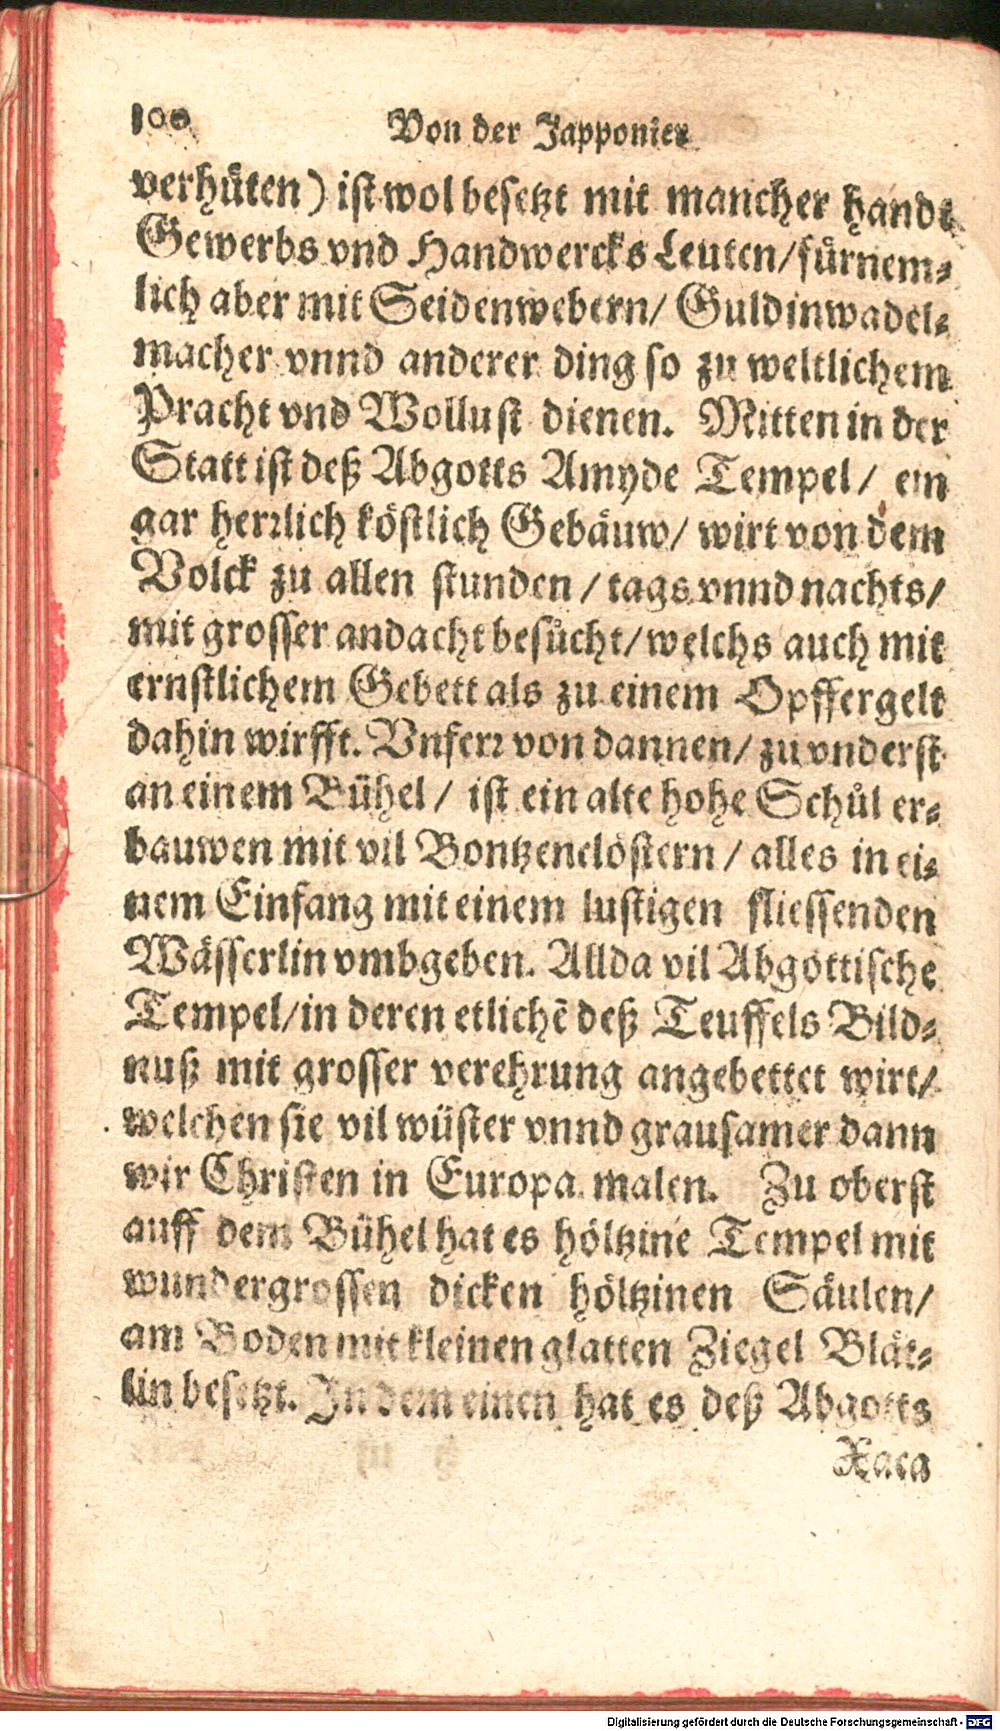 100 Von der Japponier
verhüten) ist wol besetzt mit mancher handt
Gewerbs vnd Handwercks Leuten/fürnem-
lich aber mit Seidenwebern/ Guldinwadel-
macher vnnd anderer ding so zu weltlichem
Pracht vnd Wollust dienen. Mitten in der
Statt ist deß Abgotts Amyde Tempel/ ein
gar herrlich köstlich Gebäuw/ wirt von dem
Volck zu allen stunden/ tags vnnd nachts/
mit grosser andacht besůcht/welchs auch mit
ernstlichem Gebett als zu einem Opffergelt
dahin wirfft. Vnferr von dannen/ zu vnderst
an einem Bühel/ ist ein alte hohe Schůl er-
bauwen mit vil Bontzenclöstern/ alles in ei-
nem Einfang mit einem lustigen fliessenden
Wässerlin vmbgeben. Allda vil Abgöttische
Tempel/in deren etlichē deß Teuffels Bild-
nuß mit grosser verehrung angebettet wirt/
welchen sie vil wüster vnnd grausamer dann
wir Christen in Europa malen. Zu oberst
auff dem Bühel hat es höltzine Tempel mit
wundergrossen dicken höltzinen Säulen/
am Boden mit kleinen glatten Ziegel Blät-
lin besetzt. In dem einen hat es deß Abgotts
Xaca
Digitalisierung gefördert durch die Deutsche Forschungsgemeinschaft - DFG